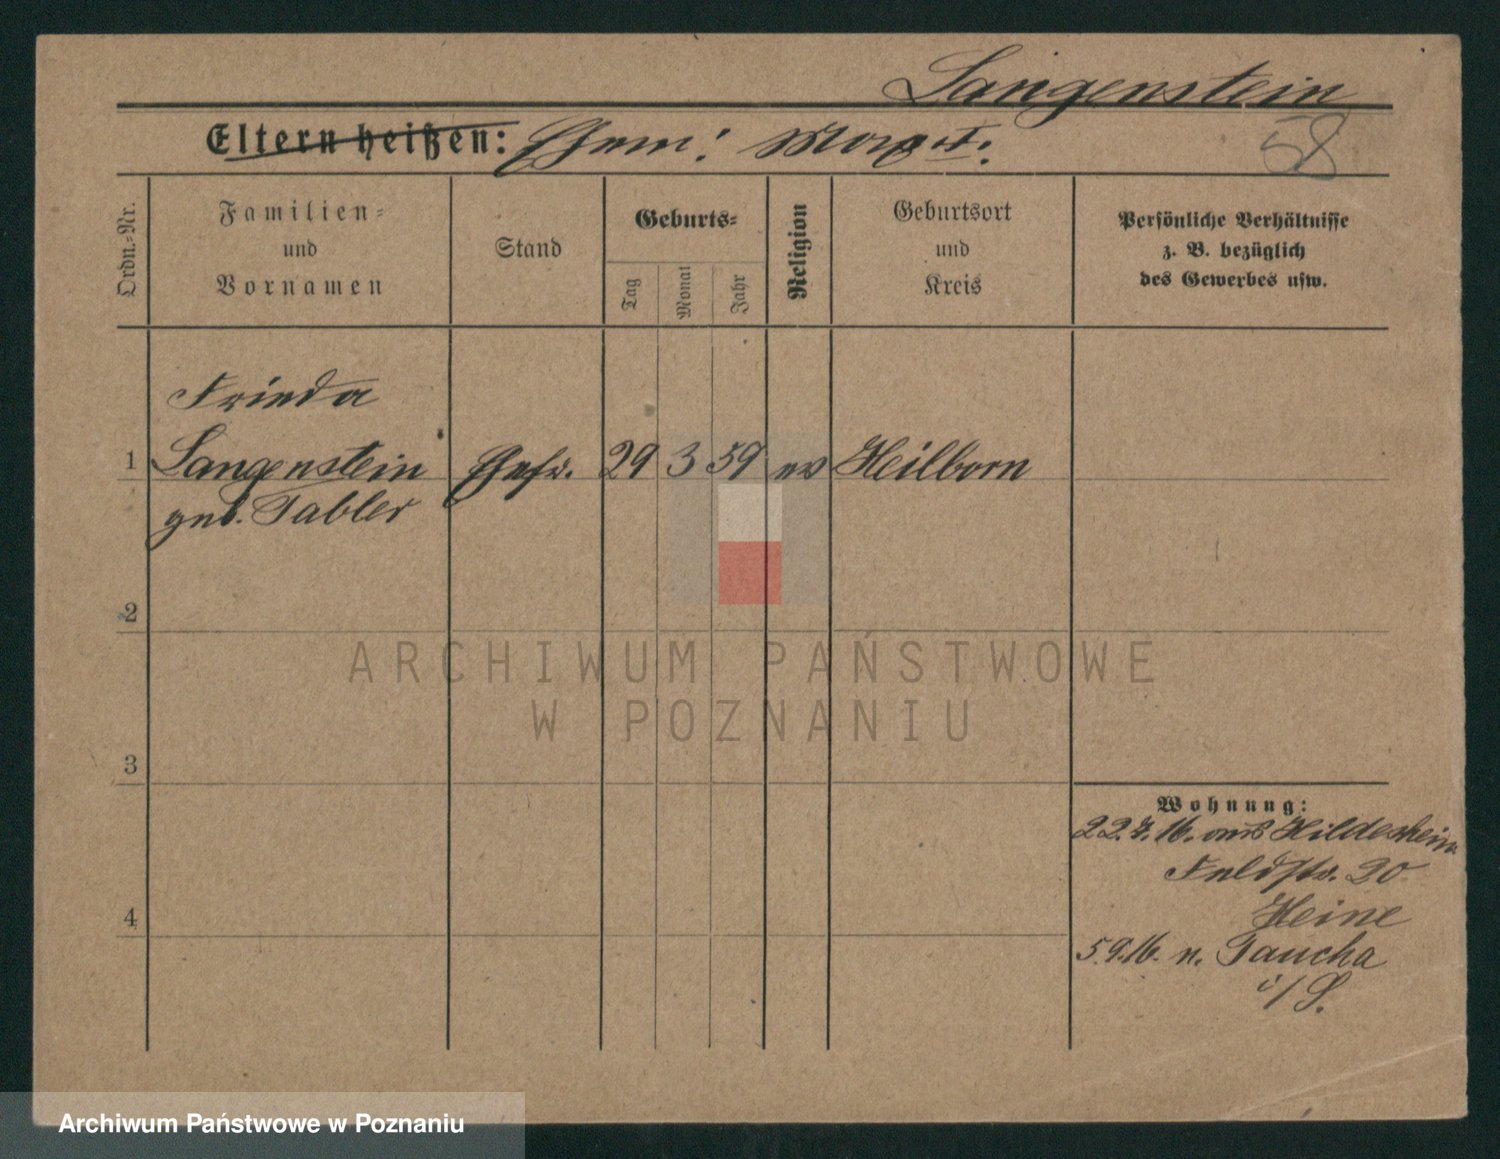 Langenstein
Eltern heißen: Ehem: Max I.
58
Ordn.-Nr.
Familien-
und
Vornamen
Stand
Geburts-
Tag
Monat
Jahr
Religion
Geburtsort
und
Kreis
Persönliche Verhältnisse
z. B. bezüglich
des Gewerbes usw.
Frieda
1 Langenstein Ehefr. 29 3 59 ev Heilborn
geb. Tabler
2
ARCHIWUM PAŃSTWOWE
W POZNANIU
3
Wohnung:
22.7.16. aus Hildesheim
Feldstr. 20
Heine
4
5.9.16. n. Taucha
i/S.
Archiwum Państwowe w Poznaniu